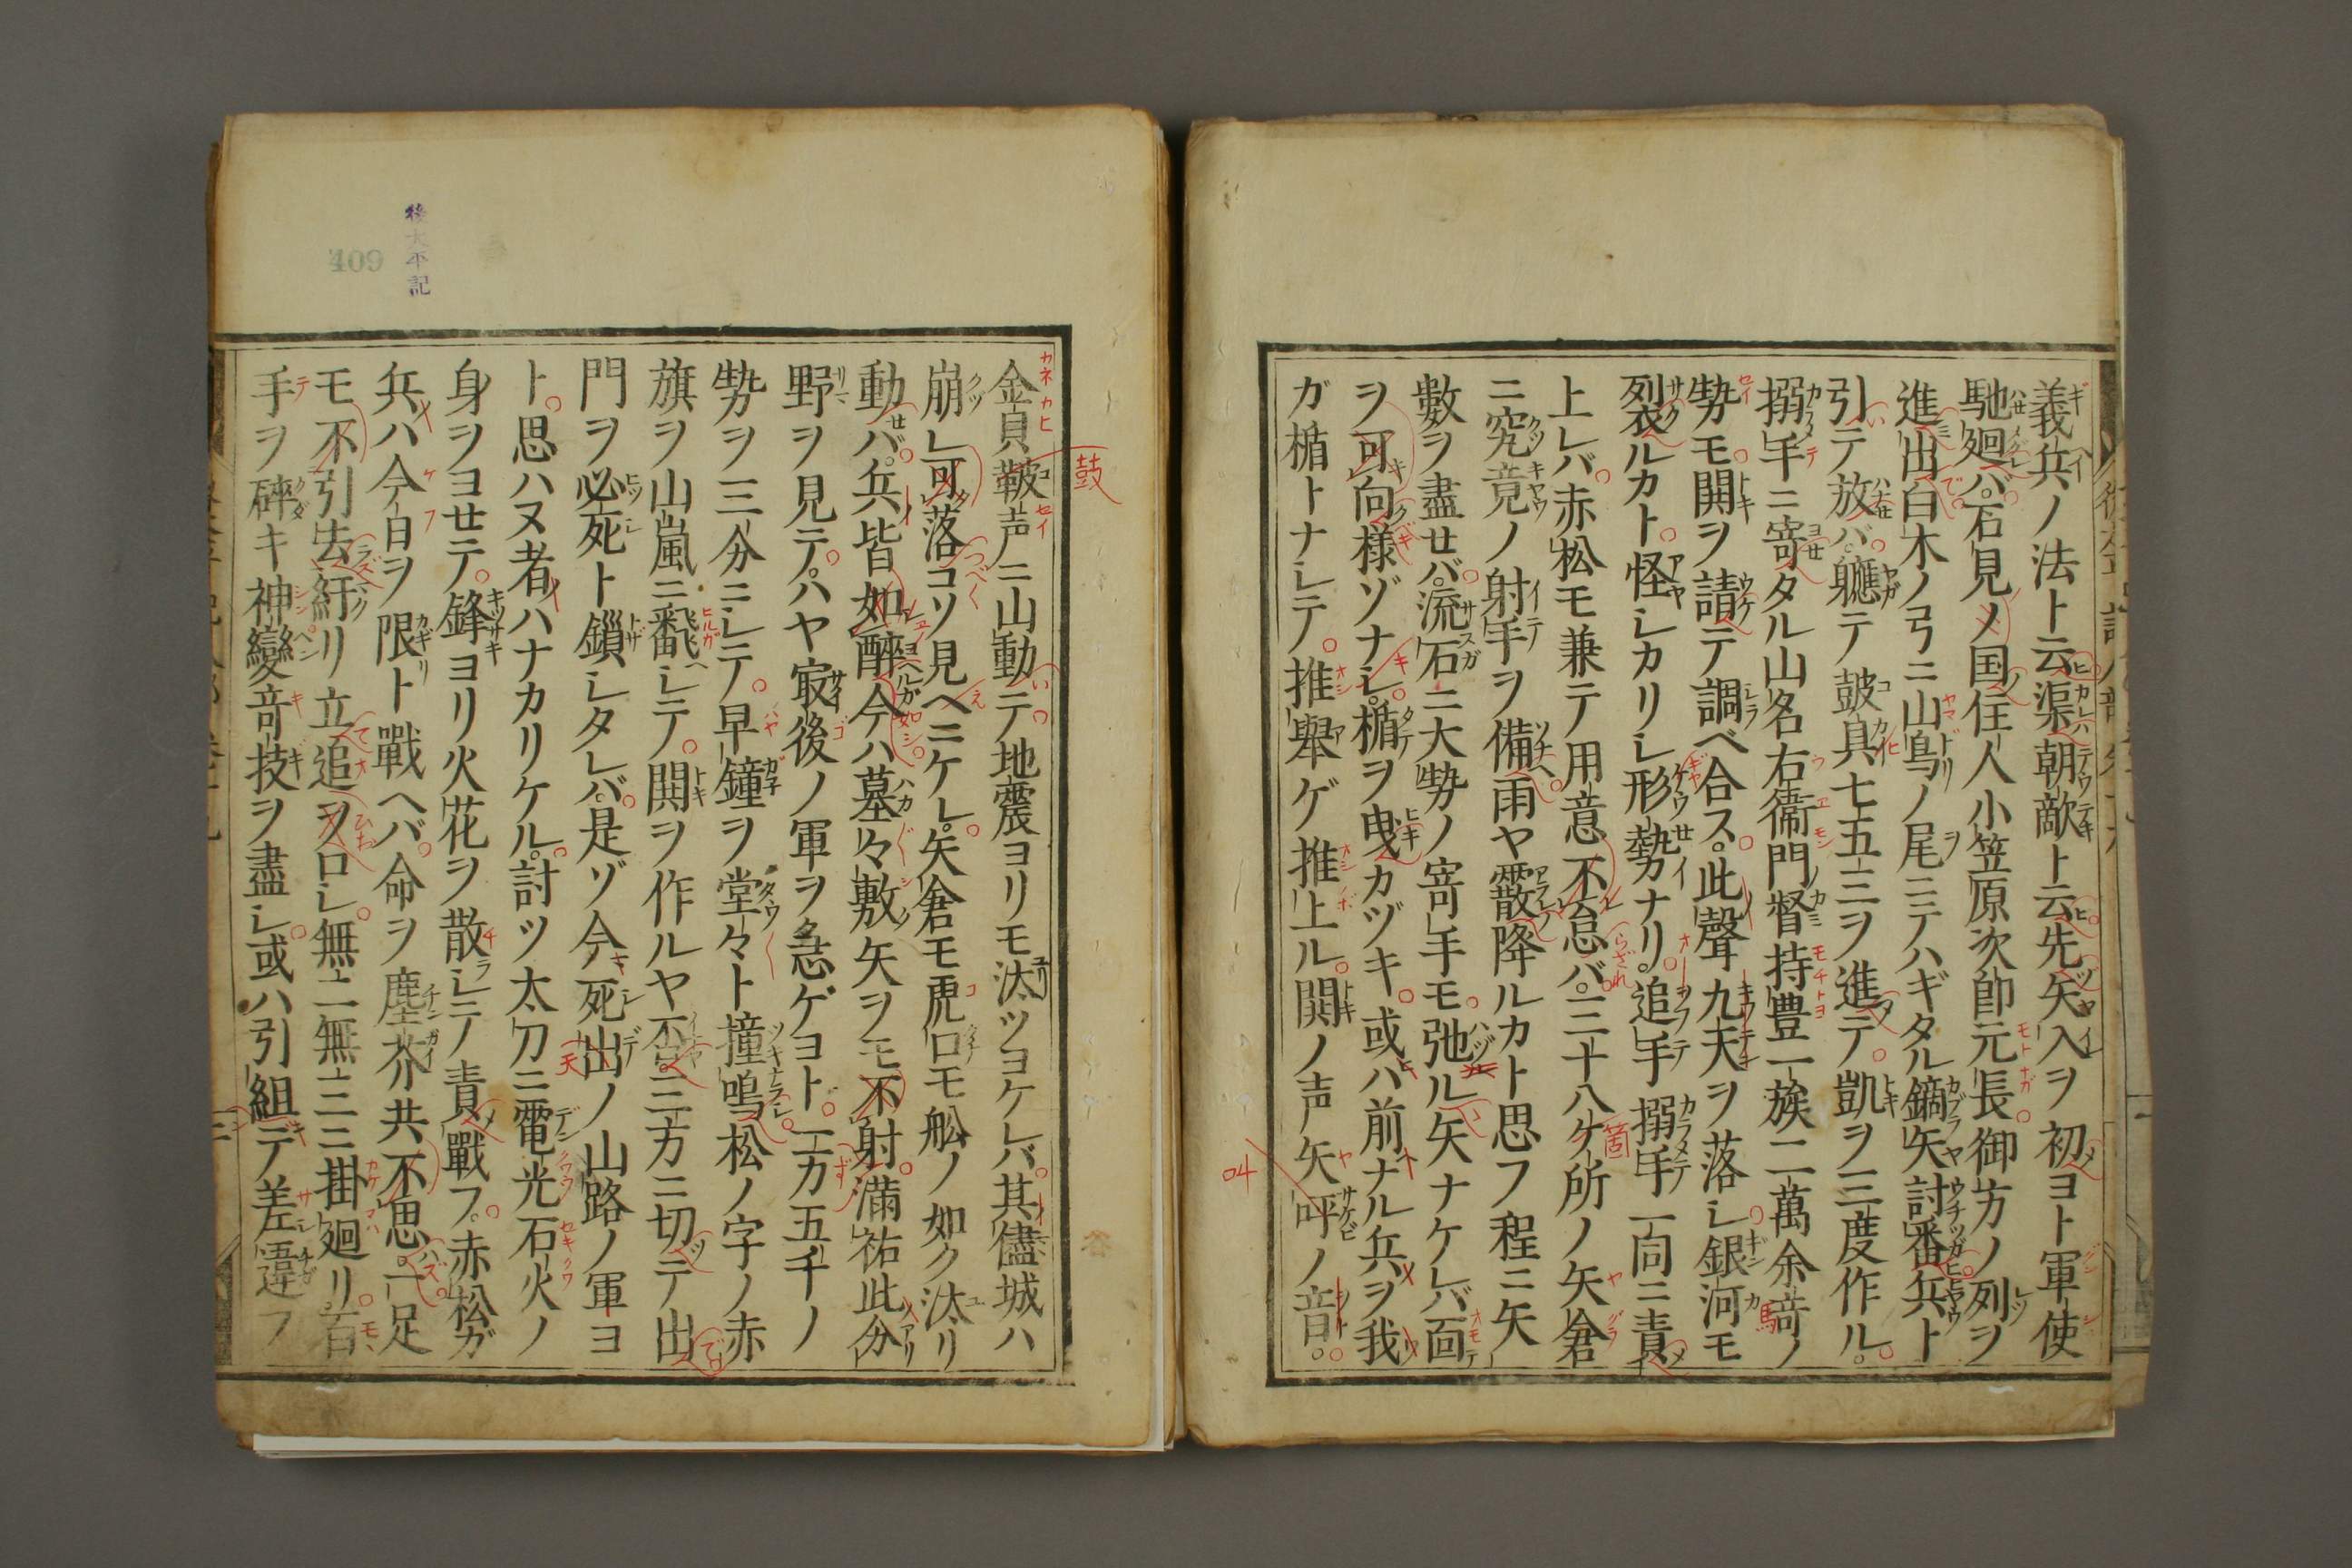 義兵ノ法ト云渠朝敵ト云先矢入ヲ初ヨト軍使
馳廻バ。石見ノ国住人小笠原次郎元長御方ノ列ヲ
進出白木ノ弓ニ山鳥ノ尾ニテハギタル鏑矢討番兵ト
引テ放バ。軈テ鼓具七五三ヲ進テ。凱ヲ三度作ル。
搦手ニ寄タル山名右衛門督持豊一族二萬余騎ノ
勢モ鬨ヲ請テ調ベ合ス。此聲九天ヲ落シ銀河モ
裂ルカト。怪シカリシ形勢ナリ。追手搦手一同ニ責
上レバ赤松モ兼テ用意不怠バ。三十八ケ所ノ矢倉
ニ究竟ノ射手ヲ備雨ヤ霰降ルカト思フ程ニ矢
數ヲ盡セバ。流石ニ大勢ノ寄手モ弛ル矢ナケレバ面
ヲ可向様ゾナシ。楯ヲ曳カヅキ。或ハ前ナル兵ヲ我
ガ楯トナシテ。推舉ゲ推上ル。鬨ノ声矢呼ノ音。
04
後太平記
409
鼓
金貝鞁声ニ山動テ地震ヨリモ汰ツヨケレバ其儘城ハ
崩レ可落コソ見ヘニケレ。矢倉モ虎口モ舩ノ如ク汰リ
動バ。兵皆如醉今ハ墓々敷矢ヲモ不射。満祐此分
野ヲ見テ。ハヤ㝡後ノ軍ヲ急ゲヨト。一万五千ノ
勢ヲ三分ニシテ。早鐘ヲ堂々ト撞鳴松ノ字ノ赤
旗ヲ山嵐ニ飜シテ。鬨ヲ作ルヤ否三方ニ切テ出
門ヲ必死ト鎖シタレバ。是ゾ今死出ノ山路ノ軍ヨ
ト。思ハヌ者ハナカリケル。討ツ太刀ニ電光石火ノ
身ヲヨセテ。鋒ヨリ火花ヲ散シテノ責戰フ。赤松ガ
兵ハ今日ヲ限ト戰ヘバ。命ヲ塵芥共不思。一足
モ不引去紆リ立追ヲロシ。無二無三ニ掛廻リ。百
手ヲ碎キ神變竒技ヲ盡シ。或ハ引組デ差違フ